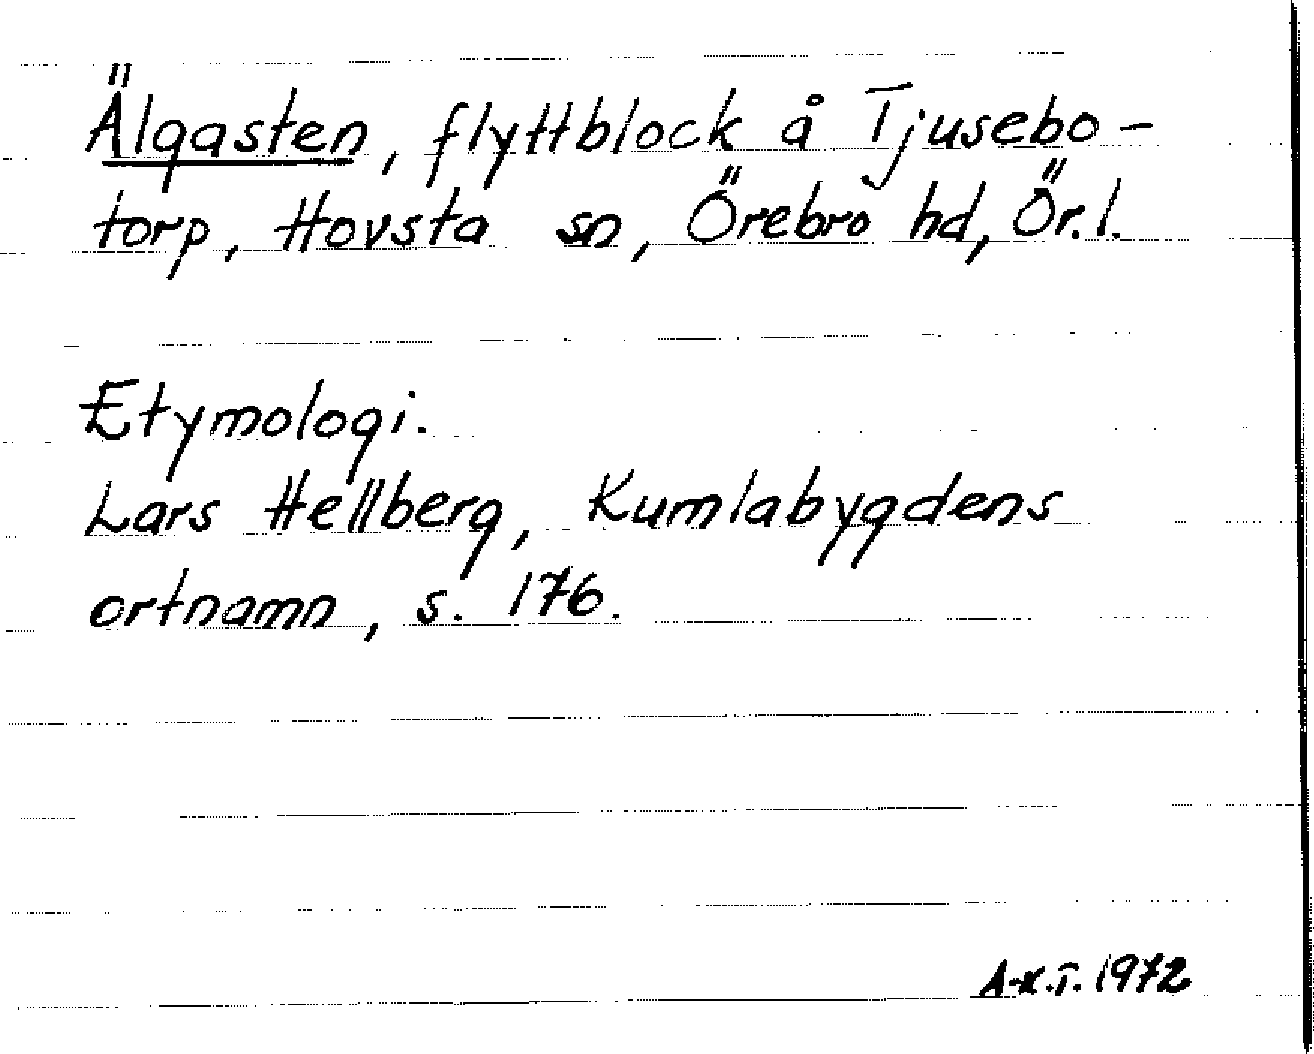 Älgasten, flyttblock å Tjusebo-
torp, Hovsta sn, Örebro hd, Ör.l.
Etymologi.
Lars Hellberg, Kumlabygdens
ortnamn, s. 176.
A-K.T. 1972